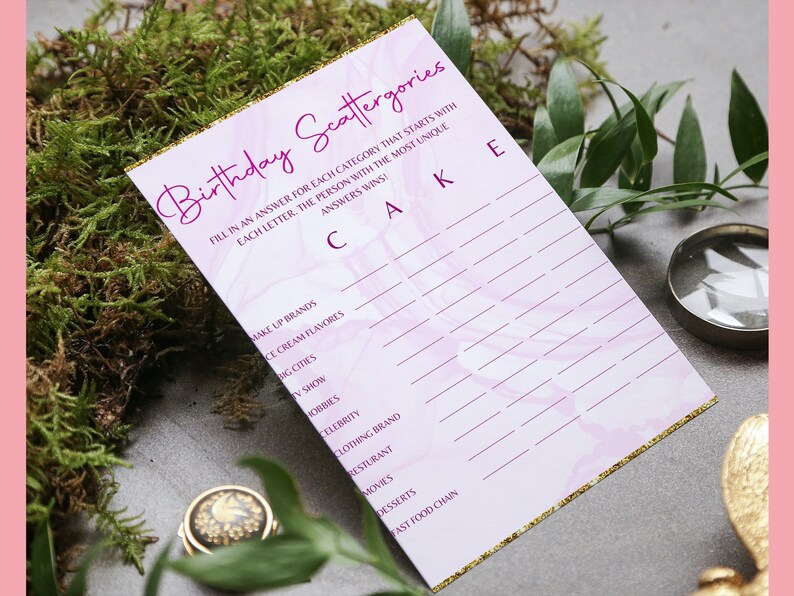 Birthday Scattergories
FILL IN AN ANSWER FOR EACH CATEGORY THAT STARTS WITH
EACH LETTER. THE PERSON WITH THE MOST UNIQUE
ANSWERS WINS!
C A K E
MAKE UP BRANDS
ICE CREAM FLAVORES
BIG CITIES
TV SHOW
HOBBIES
CELEBRITY
CLOTHING BRAND
RESTURANT
MOVIES
DESSERTS
FAST FOOD CHAIN